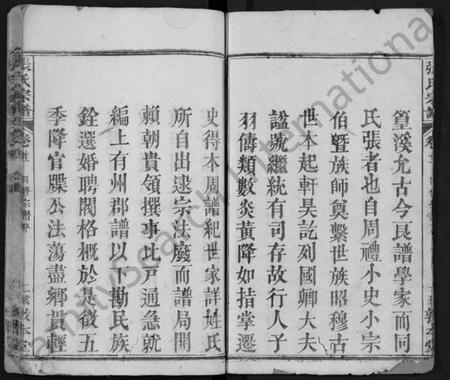 張氏宗譜
篁溪允古今良譜學家而同
氏張者也自周禮小史小宗
伯曁族師奠繫世族昭穆古
世本起軒昊訖列國卿大夫
諡號繼統有司存故行人子
羽儔類數炎黃降如指掌遷
史得本周譜紀世家詳姓氏
所自出逮宗法廢而譜局開
賴朝貴領撰事比戸通急就
編上有州郡譜以下勘民族
銓選婚聘閥格概於是徵五
季降官牒公法蕩盡鄉貫輕
張氏宗譜
卷首
敦本堂